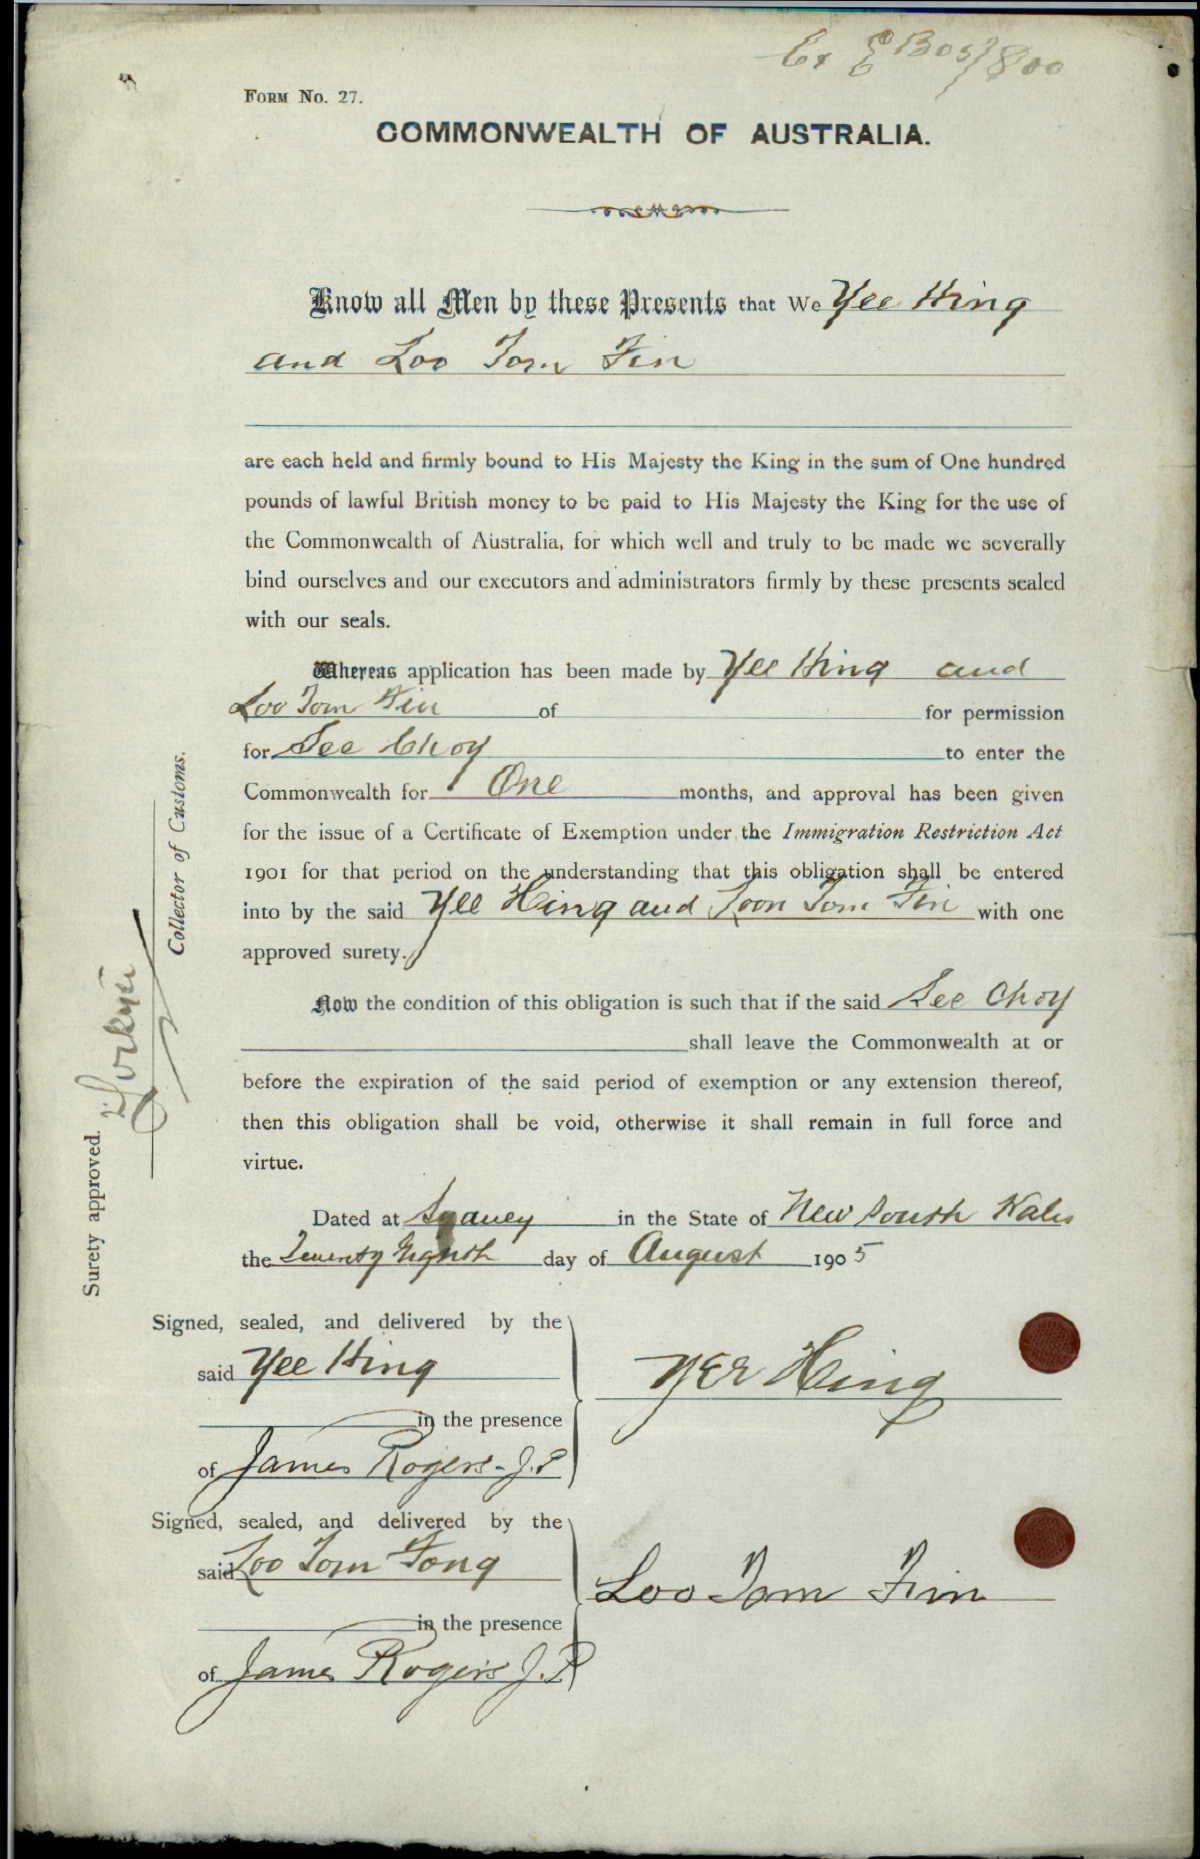 FORM NO. 27.
COMMONWEALTH OF AUSTRALIA.
Know all Men by these Presents that We Yee Hing
and Loo Tom Fin
are each held and firmly bound to His Majesty the King in the sum of One hundred
pounds of lawful British money to be paid to His Majesty the King for the use of
the Commonwealth of Australia, for which well and truly to be made we severally
bind ourselves and our executors and administrators firmly by these presents sealed
with our seals.
Whereas application has been made by Yee Hing and
Loo Tom Fin of for permission
for See Choy to enter the
Commonwealth for One months, and approval has been given
for the issue of a Certificate of Exemption under the Immigration Restriction Act
1901 for that period on the understanding that this obligation shall be entered
into by the said Yee Hing and Loon Tom Fin with one
approved surety.
Now the condition of this obligation is such that if the said See Choy
shall leave the Commonwealth at or
before the expiration of the said period of exemption or any extension thereof,
then this obligation shall be void, otherwise it shall remain in full force and
virtue.
Dated at Sydney in the State of New South Wales
the Twenty Eighth day of August 1905
Signed, sealed, and delivered by the
said Yee Hing
Yee Hing
in the presence
of James Rogers - J.P
Signed, sealed, and delivered by the
said Loo Tom Fong
Loo Tom Fin
in the presence
of James Rogers J.P
Surety approved.
Collector of Customs.